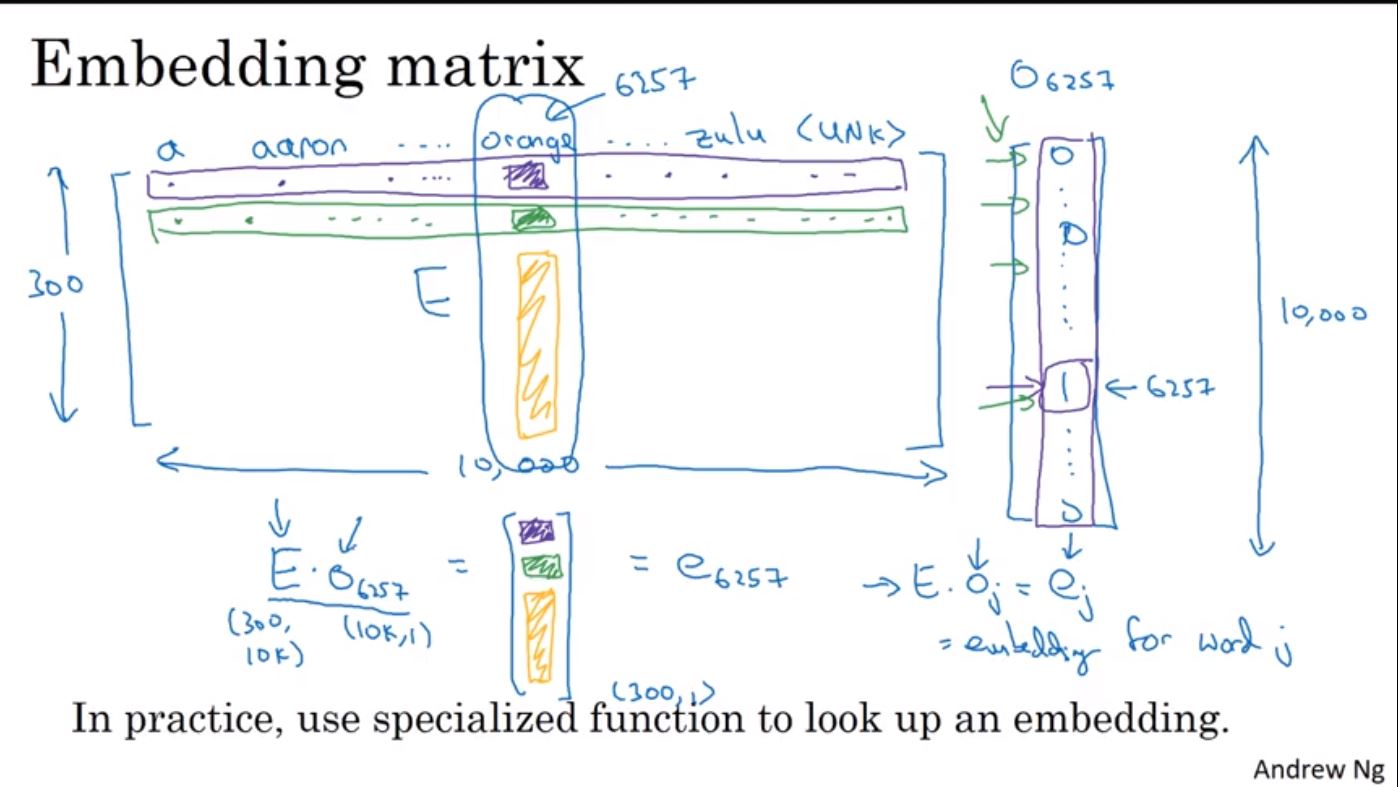 Embedding matrix
6257
O6257
a aaron .... orange .... zulu <UNK>
0
0
300
E
10,000
1 ← 6257
10,000
0
E · O6257 = [ ] = e6257
(300, 10K) (10K,1)
(300,1)
→ E · Oj = ej
= embedding for word j
In practice, use specialized function to look up an embedding.
Andrew Ng